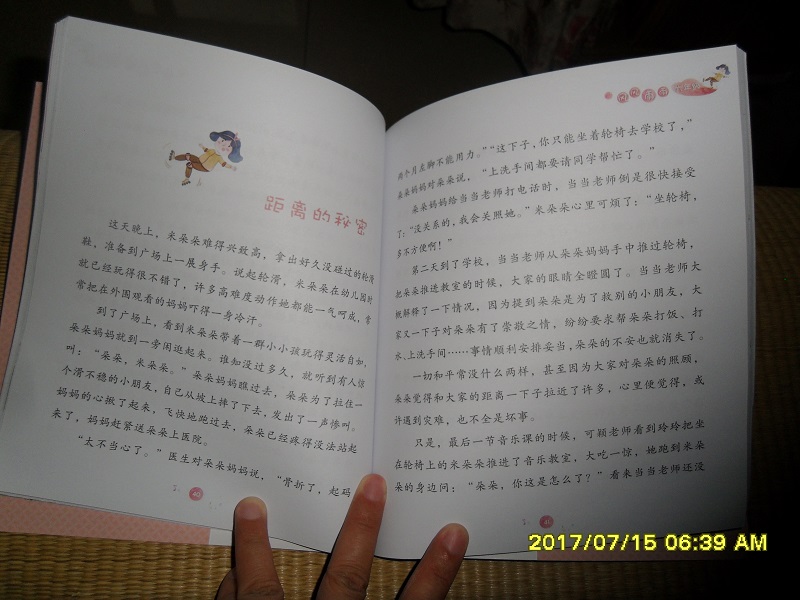 距离的秘密
这天晚上，米朵朵难得兴致高，拿出好久没碰过的轮滑
鞋，准备到广场上一展身手。说起轮滑，米朵朵在幼儿园时
就已经玩得很不错了，许多高难度动作她都能一气呵成，常
常把在外围观看的妈妈吓得一身冷汗。
到了广场上，看到米朵朵带着一群小小孩玩得灵活自如，
朵朵妈妈就到一旁闲逛起来。谁知没过多久，就听到有人惊
叫：“朵朵，米朵朵。”朵朵妈妈瞧过去，朵朵为了拉住一
个滑不稳的小朋友，自己从坡上摔了下去，发出了一声惨叫。
妈妈的心揪了起来，飞快地跑过去，朵朵已经疼得没法站起
来了，妈妈赶紧送朵朵上医院。
“太不当心了。”医生对朵朵妈妈说，“骨折了，起码
40
两个月左脚不能用力。”“这下子，你只能坐着轮椅去学校了，”
朵朵妈妈对朵朵说，“上洗手间都要请同学帮忙了。”
朵朵妈妈给当当老师打电话时，当当老师倒是很快接受
了：“没关系的，我会关照她。”米朵朵心里可烦了：“坐轮椅，
多不方便啊！”
第二天到了学校，当当老师从朵朵妈妈手中推过轮椅，
把朵朵推进教室的时候，大家的眼睛全瞪圆了。当当老师大
概解释了一下情况，因为提到朵朵是为了救别的小朋友，大
家又一下子对朵朵有了崇敬之情，纷纷要求帮朵朵打饭、打
水、上洗手间……事情顺利安排妥当，朵朵的不安也就消失了。
一切和平常没什么两样，甚至因为大家对朵朵的照顾，
朵朵觉得和大家的距离一下子拉近了许多，心里便觉得，或
许遇到灾难，也不全是坏事。
只是，最后一节音乐课的时候，可颖老师看到玲玲把坐
在轮椅上的米朵朵推进了音乐教室，大吃一惊，她跑到米朵
朵的身边问：“朵朵，你这是怎么了？”看来当当老师还没
41
2017/07/15 06:39 AM